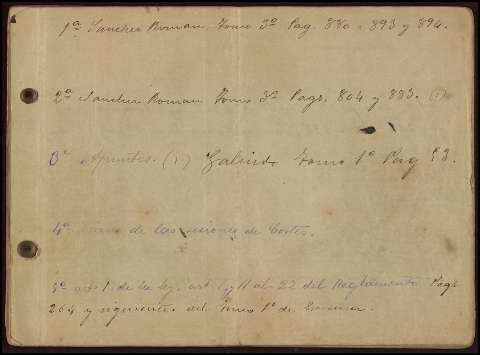 1ª Sanchez Roman, Tomo 3º Pag. 880, 893 y 894.
2ª Sanchez Roman Tomo 3º Pags. 804 y 883. (1)
3ª Apuntes. (1) Galindo Tomo 1º Pag
4ª de las sesiones de Cortes.
5ª art 1º de la ley, art 1 y 11 al 22 del Reglamento Pags
264 y siguientes del Tomo 1º de